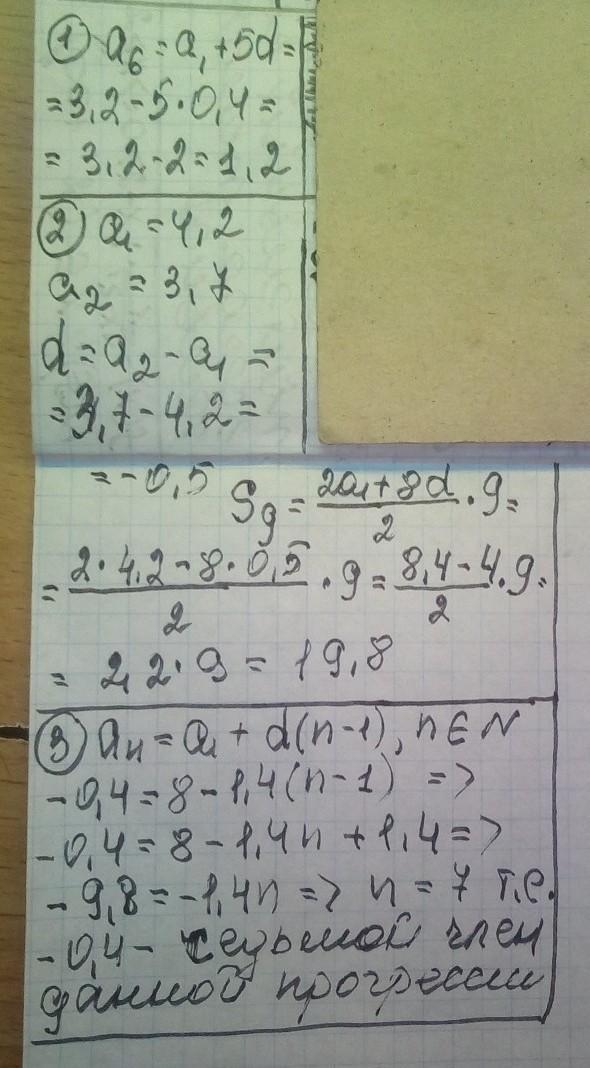 ① a₆ = a₁ + 5d =
= 3,2 - 5 · 0,4 =
= 3,2 - 2 = 1,2
② a₁ = 4,2
a₂ = 3,7
d = a₂ - a₁ =
= 3,7 - 4,2 =
= -0,5 S₉ = (2a₁ + 8d)/2 · 9 =
= (2 · 4,2 - 8 · 0,5)/2 · 9 = (8,4 - 4)/2 · 9 =
= 2,2 · 9 = 19,8
③ aₙ = a₁ + d(n-1), n ∈ N
-0,4 = 8 - 1,4(n-1) =>
-0,4 = 8 - 1,4n + 1,4 =>
-9,8 = -1,4n => n = 7 т.е.
-0,4 - седьмой член
данной прогрессии